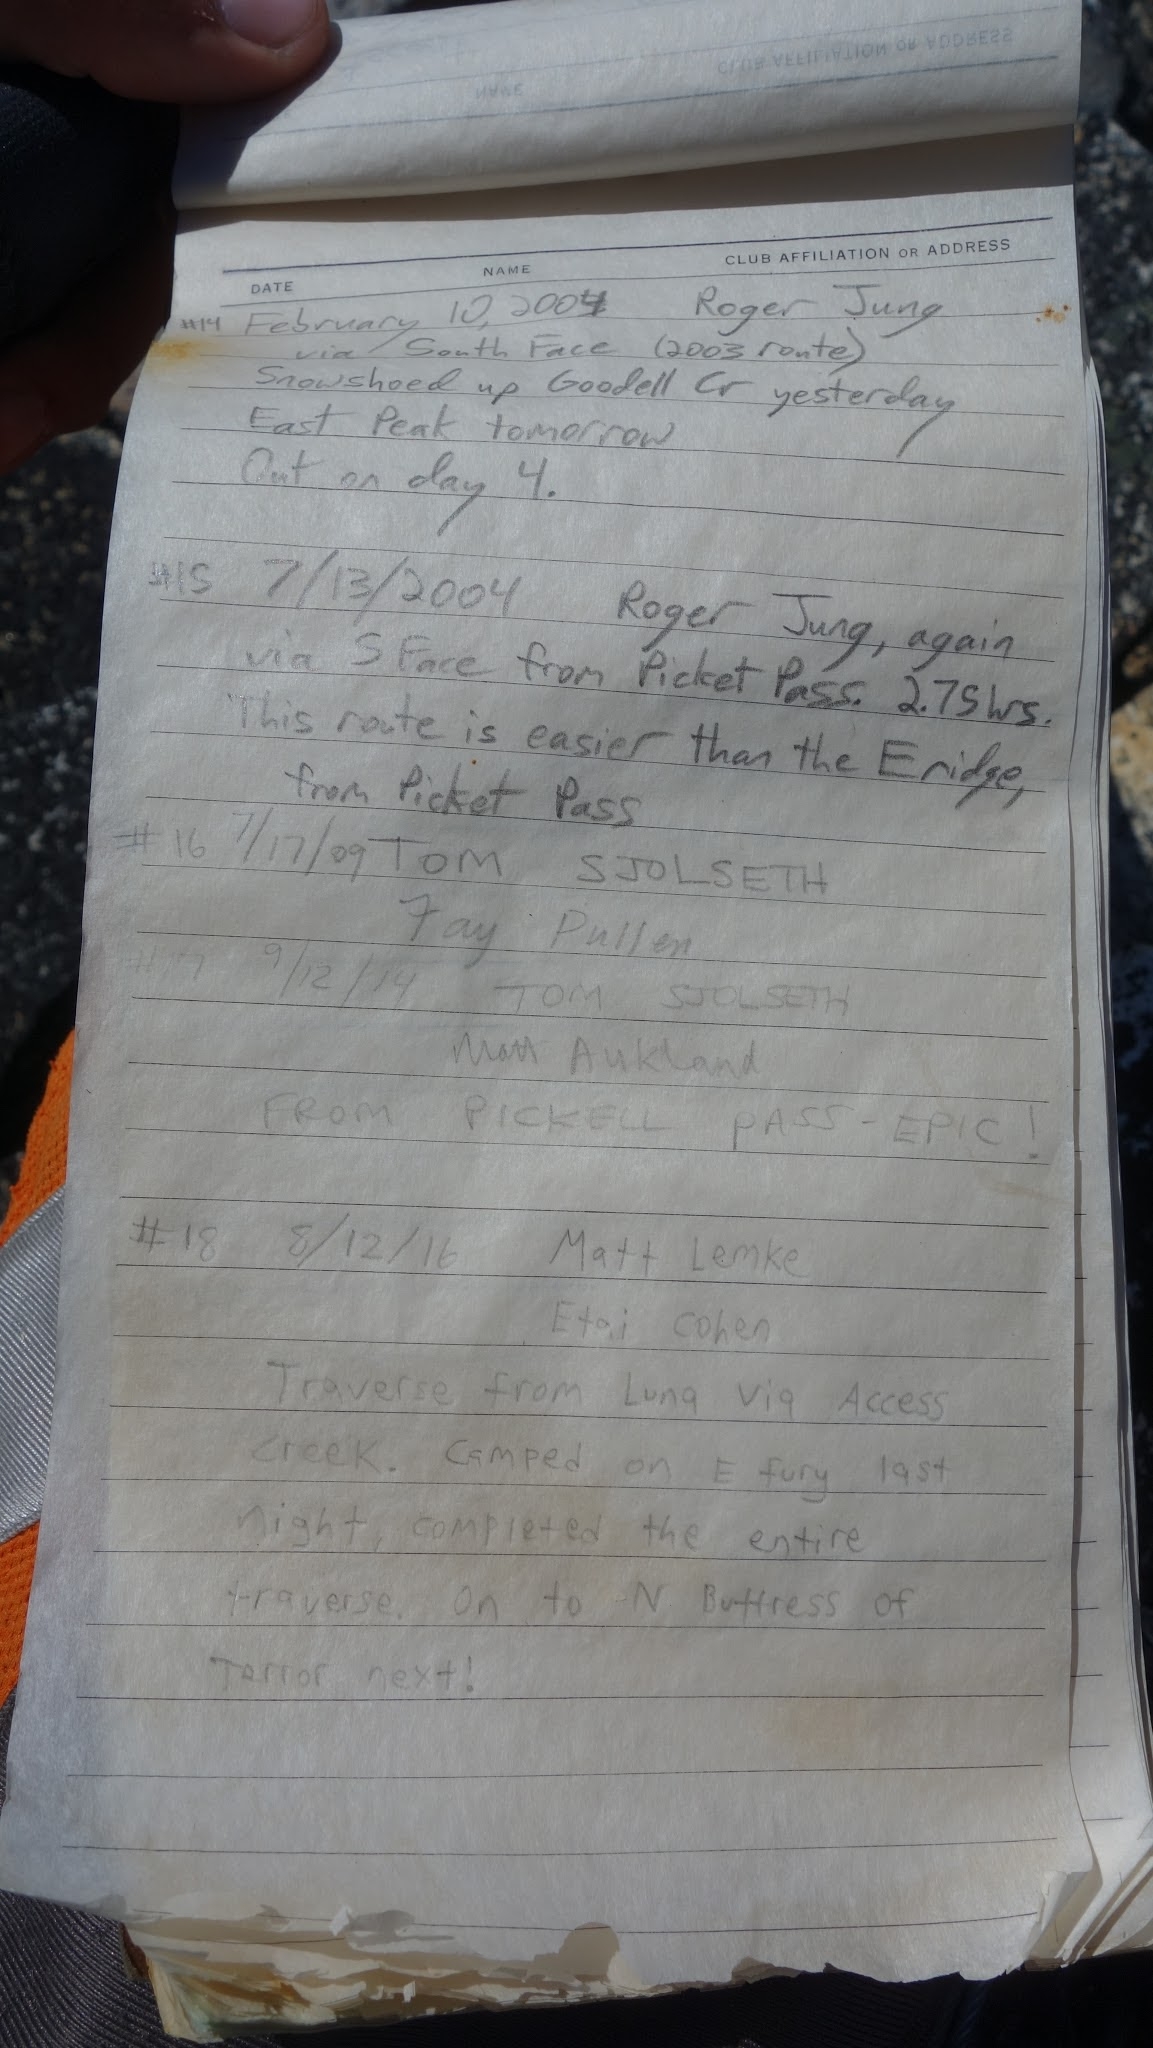 CLUB AFFILIATION OR ADDRESS
NAME
DATE NAME CLUB AFFILIATION OR ADDRESS
#14 February 10, 2004 Roger Jung
via South Face (2003 route)
Snowshoed up Goodell Cr yesterday
East Peak tomorrow
Out on day 4.
#15 7/13/2004 Roger Jung, again
via S Face from Picket Pass. 2.75 hrs.
This route is easier than the E ridge,
from Picket Pass
#16 7/17/09 TOM SJOLSETH
Fay Pullen
#17 9/12/14 TOM SJOLSETH
Matt Aukland
FROM PICKELL PASS - EPIC!
#18 8/12/16 Matt Lemke
Etai Cohen
Traverse from Luna via Access
Creek. Camped on E fury last
night, completed the entire
traverse. On to N Buttress of
Terror next!